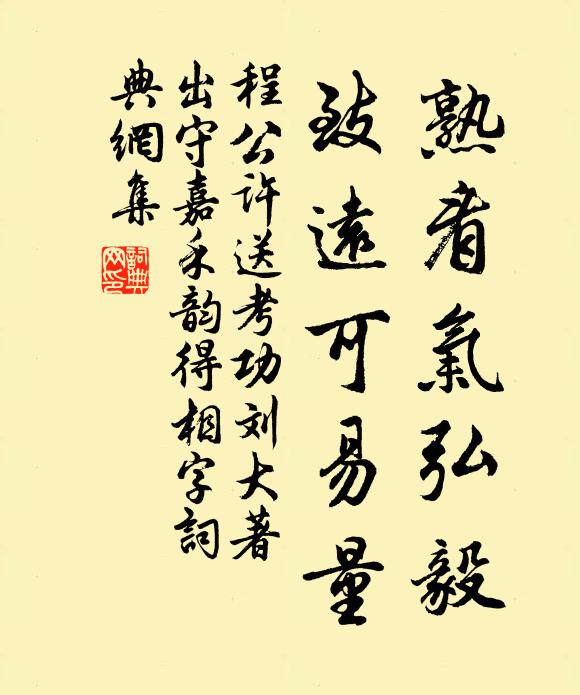 熟看氣弘毅
致遠可易量
程公許送考功刘大著
出守嘉禾韵得相字詞
典網集
詞典
网印